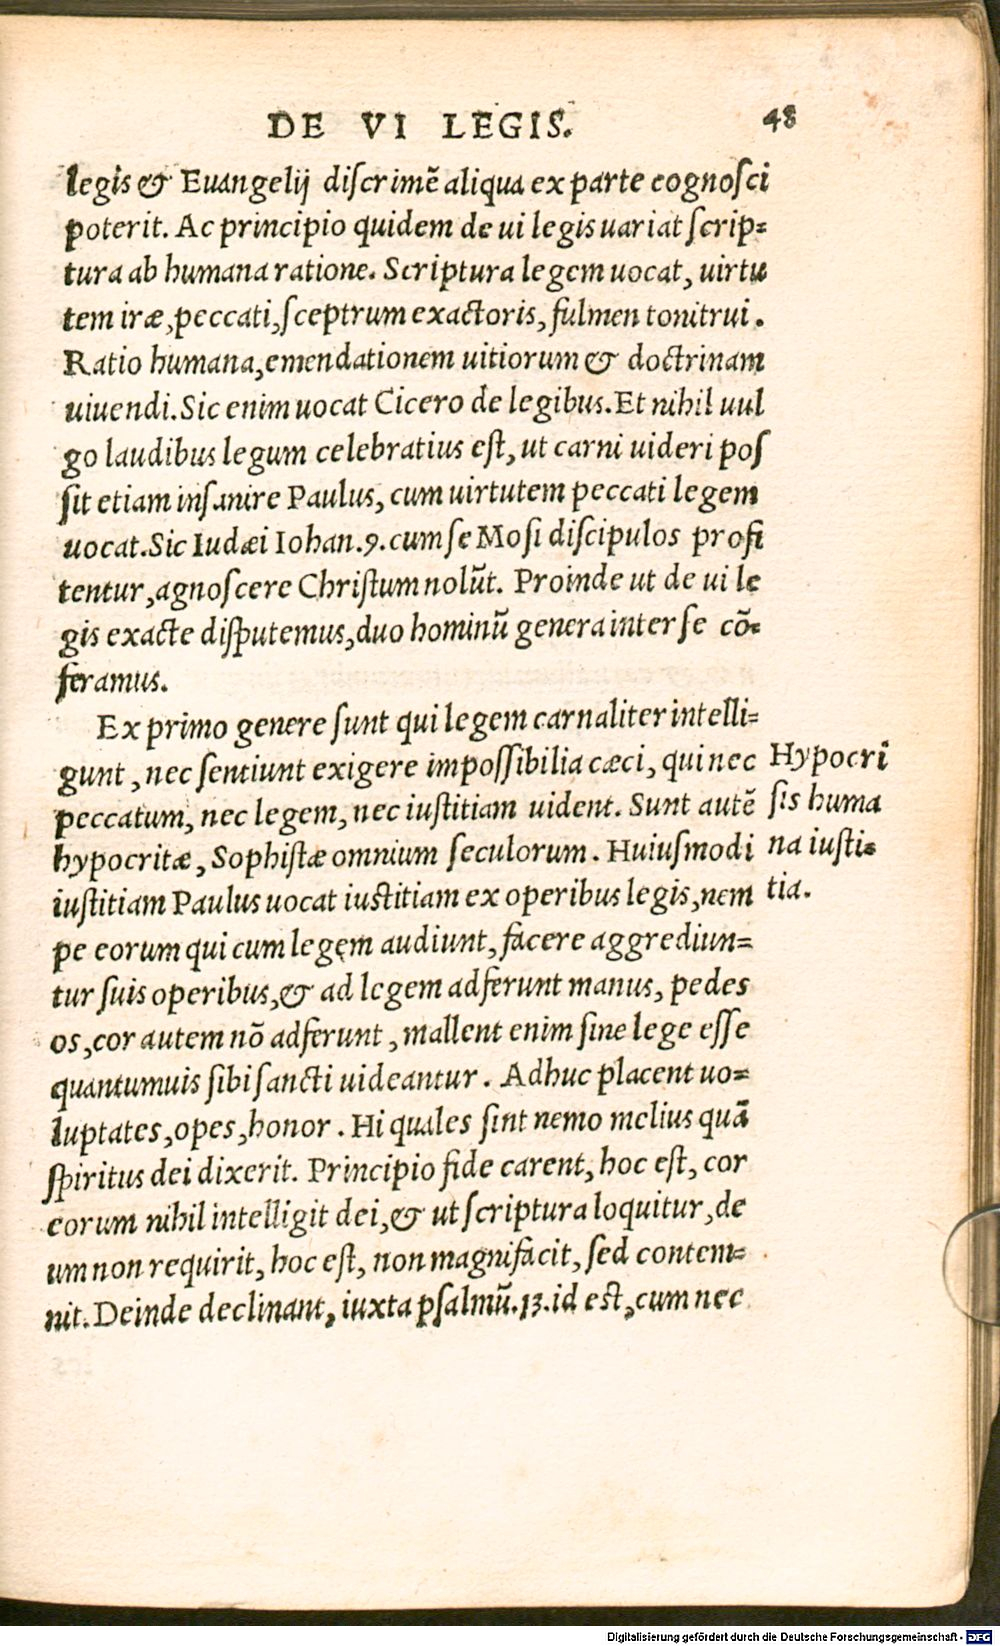 DE VI LEGIS. 48
legis & Euangelij discrimē aliqua ex parte cognosci
poterit. Ac principio quidem de ui legis uariat scrip=
tura ab humana ratione. Scriptura legem uocat, uirtu
tem iræ, peccati, sceptrum exactoris, fulmen tonitrui.
Ratio humana, emendationem uitiorum & doctrinam
uiuendi. Sic enim uocat Cicero de legibus. Et nihil uul
go laudibus legum celebratius est, ut carni uideri pos
sit etiam insanire Paulus, cum uirtutem peccati legem
uocat. Sic Iudæi Iohan. 9. cum se Mosi discipulos profi
tentur, agnoscere Christum nolūt. Proinde ut de ui le
gis exacte disputemus, duo hominū genera inter se cō=
feramus.
Ex primo genere sunt qui legem carnaliter intelli=
gunt, nec sentiunt exigere impossibilia cæci, qui nec
peccatum, nec legem, nec iustitiam uident. Sunt autē
hypocritæ, Sophistæ omnium seculorum. Huiusmodi
iustitiam Paulus uocat iustitiam ex operibus legis, nem
pe eorum qui cum legem audiunt, facere aggrediun=
tur suis operibus, & ad legem adferunt manus, pedes
os, cor autem nō adferunt, mallent enim sine lege esse
quantumuis sibi sancti uideantur. Adhuc placent uo=
luptates, opes, honor. Hi quales sint nemo melius quā
spiritus dei dixerit. Principio fide carent, hoc est, cor
eorum nihil intelligit dei, & ut scriptura loquitur, de
um non requirit, hoc est, non magnifacit, sed contem=
nit. Deinde declinant, iuxta psalmū. 13. id est, cum nec
Hypocri
sis huma
na iusti=
tia.
Digitalisierung gefördert durch die Deutsche Forschungsgemeinschaft - DFG